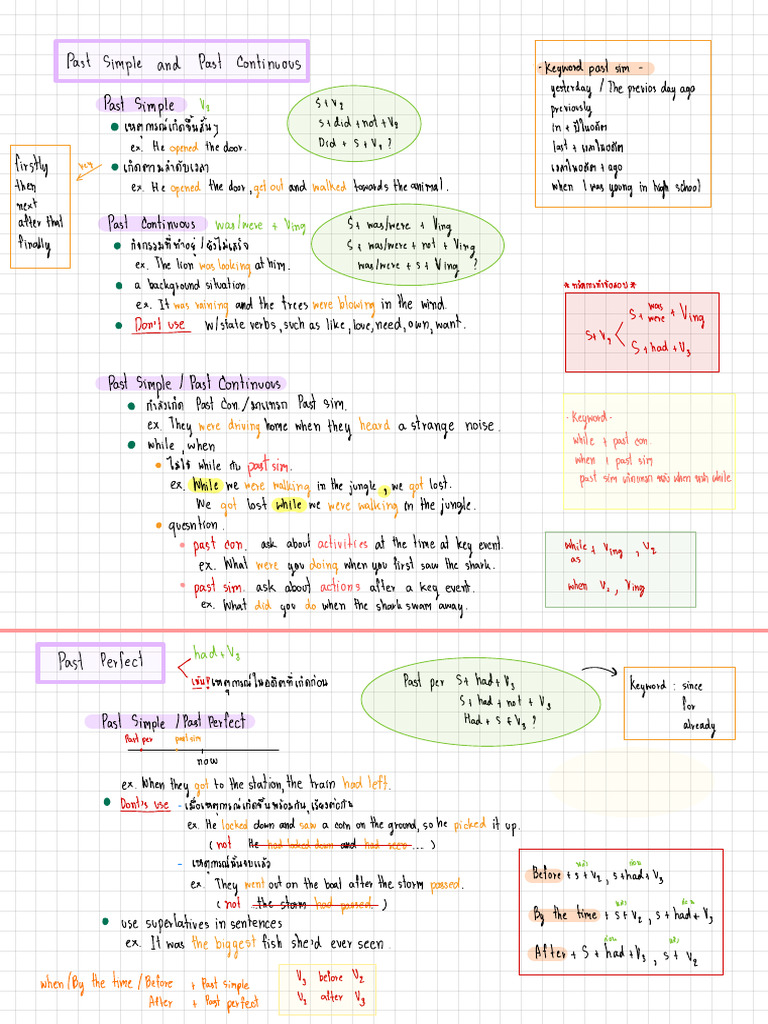 Past Simple and Past Continuous
Past Simple V₂
เหตุการณ์เกิดขึ้นสั้นๆ
ex. He opened the door.
เกิดตามลำดับเวลา
ex. He opened the door, get out and walked towards the animal.
S+V₂
S+did+not+V₂
Did + S + V₂ ?
- Keyword past sim -
yesterday / The previos day ago
previously
in + ปีในอดีต
last + เวลาในอดีต
เวลาในอดีต + ago
when I was young in high school
key
firstly
then
next
after that
finally
Past Continuous was/were + Ving
กิจกรรมที่ทำอยู่ / ยังไม่เสร็จ
ex. The lion was looking at him.
a background situation.
ex. It was raining and the trees were blowing in the wind.
Don't use w/state verbs, such as like, love, need, own, want.
S + was/were + Ving
S + was/were + not + Ving
was/were + S + Ving ?
S+V₂
S + was were + Ving
S + had + V₃
Past Simple / Past Continuous
กำลังเกิด Past Con. / มาแทรก Past sim.
ex. They were driving home when they heard a strange noise.
while, when
ไม่ใช้ while กับ past sim.
ex. While we were walking in the jungle, we got lost.
We got lost while we were walking in the jungle.
quesntion.
past con. ask about activities at the time at key event.
ex. What were you doing when you first saw the shark.
past sim. ask about actions after a key event.
ex. What did you do when the shark swam away.
- Keyword -
while + past con.
when + past sim
while + Ving , V₂
as
when V₂ , Ving
Past Perfect
had + V₃
เน้น! เหตุการณ์ในอดีตที่เกิดก่อน
Past per S + had + V₃
S + had + not + V₃
Had + S + V₃ ?
Keyword : since
for
already
Past Simple / Past Perfect
Past per past sim
now
ex. When they got to the station, the train had left.
Dont's use - เมื่อเหตุการณ์เกิดขึ้นพร้อมกัน, เรียงต่อกัน
ex. He locked down and saw a coin on the ground, so he picked it up.
( not He had locked down and had seen ... )
- เหตุการณ์นั้นจบแล้ว
ex. They went out on the boat after the storm passed.
( not the storm had passed. )
use superlatives in sentences
ex. It was the biggest fish she'd ever seen.
หลัง ก่อน
Before + S + V₂ , S + had + V₃
หลัง ก่อน
By the time + S + V₂ , S + had + V₃
ก่อน หลัง
After + S + had + V₃ , S + V₂
when / By the time / Before + Past simple
After + Past perfect
V₃ before V₂
V₂ after V₃